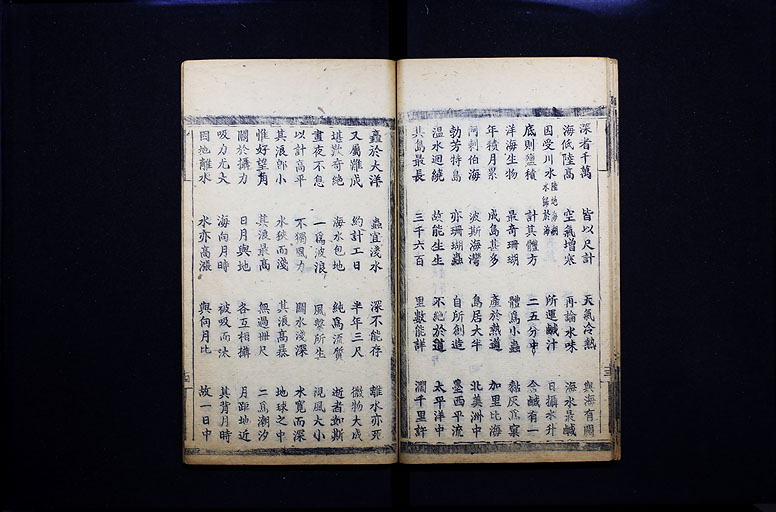 深者千萬 皆以尺計 天氣冷熱 與海有關
海低陸高 空氣增寒 再論水味 海水最鹹
因受川水 陸地海潮水歸於海 所運鹹汁 日攝水升
底則鹽積 計其體方 二五分中 含鹹有一
洋海生物 最奇珊瑚 體爲小蟲 黏灰爲窠
年積月累 成島甚多 產於熱道 加里比海
阿剌伯海 波斯海灣 島居大半 北美洲中
勃芳特島 亦珊瑚蟲 自所創造 墨西平流
溫水迴繞 故能生生 不絶於道 太平洋中
其島最長 三千六百 里數能詳 濶千里許
蟲於大洋 蟲宜淺水 深不能存 離水亦死
又屬難成 約計工日 半年三尺 微物大成
堪歎奇絶 海水包地 純爲流質 逝者如斯
晝夜不息 一爲波浪 風擊所生 視風大小
以計高平 不獨風力 關水淺深 水寬而深
其浪卽小 水狹而淺 其浪高暴 地球之中
惟好望角 其浪最高 無過卌尺 二爲潮汐
關於攝力 日月與地 各互相攝 月距地近
吸力尤大 海向月時 被吸而汰 其背月時
因地離水 水亦高漲 與向月比 故一日中